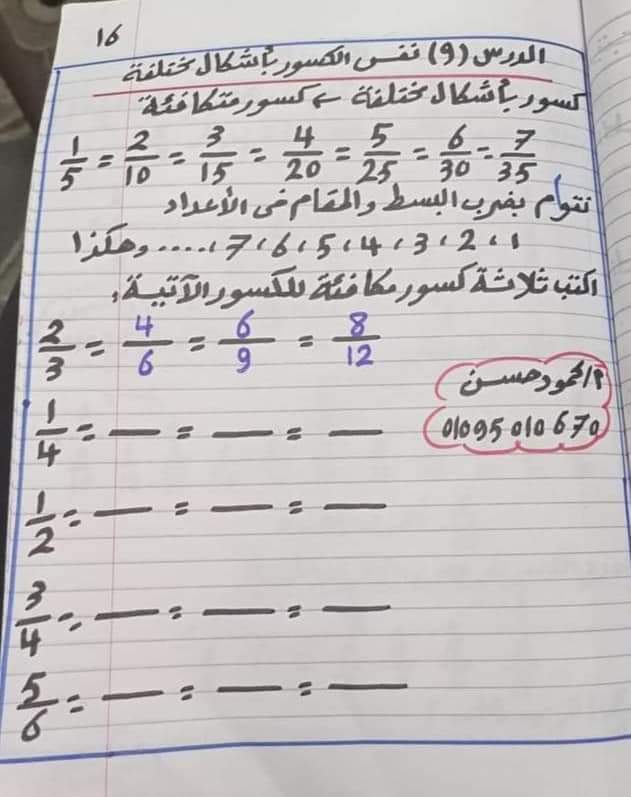 16
الدرس (9) نفس الكسور بأشكال مختلفة
كسور بأشكال مختلفة ← كسور متكافئة
1/5 = 2/10 = 3/15 = 4/20 = 5/25 = 6/30 = 7/35
نقوم بضرب البسط والمقام فى الأعداد
1، 2، 3، 4، 5، 6، 7، .... وهكذا
اكتب ثلاثة كسور مكافئة للكسور الآتية:
2/3 = 4/6 = 6/9 = 8/12
أ/محمود حسن
01095010670
1/4 = — = — = —
1/2 = — = — = —
3/4 = — = — = —
5/6 = — = — = —